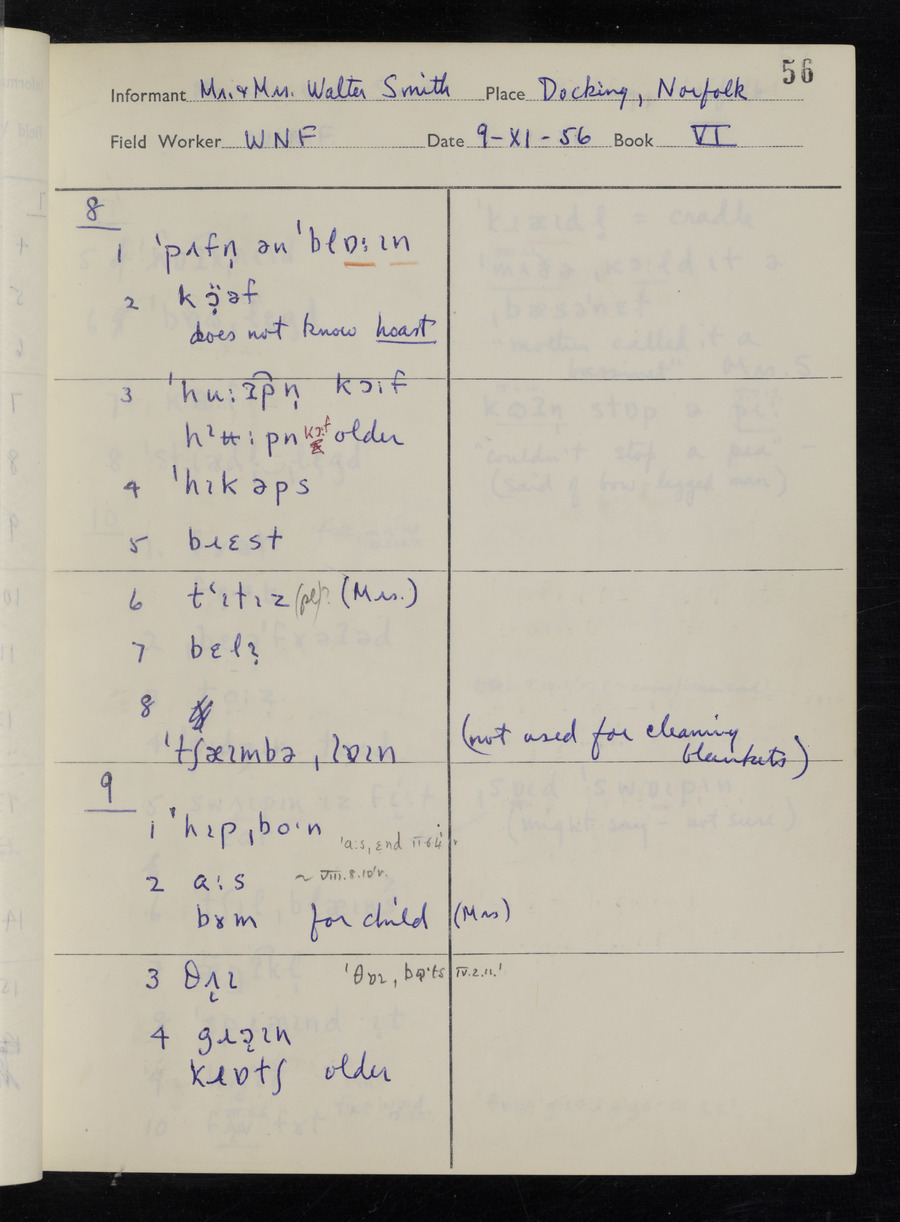 56
Informant Mr. & Mrs. Walter Smith Place Docking, Norfolk
Field Worker WNF Date 9-XI-56 Book VI
8
1 ˈpʌfn̩ ən ˈblɒːɪn
2 kɔ̤̈əf
does not know hoast
3 kɔːf
kɔːf older
4 ˈhɪkəps
5 bɹɛst
6 tʻɪtɪz (pl)? (Mrs.)
7 bɛlɪ̞
8
ˈtʃæɪmbə ˌlɒɪn (not used for cleaning
blankets)
9
1 ˈhɪp ˌboˑn
'aːs, ɛnd II.6.4'
2 aːs ~ VIII.8.10'r.
bɤm for child (Mrs)
3 θʌ̞ɪ 'θɒɪ, IV.2.11.'
4 gɹɔ̞ɪn
kɹɒtʃ older